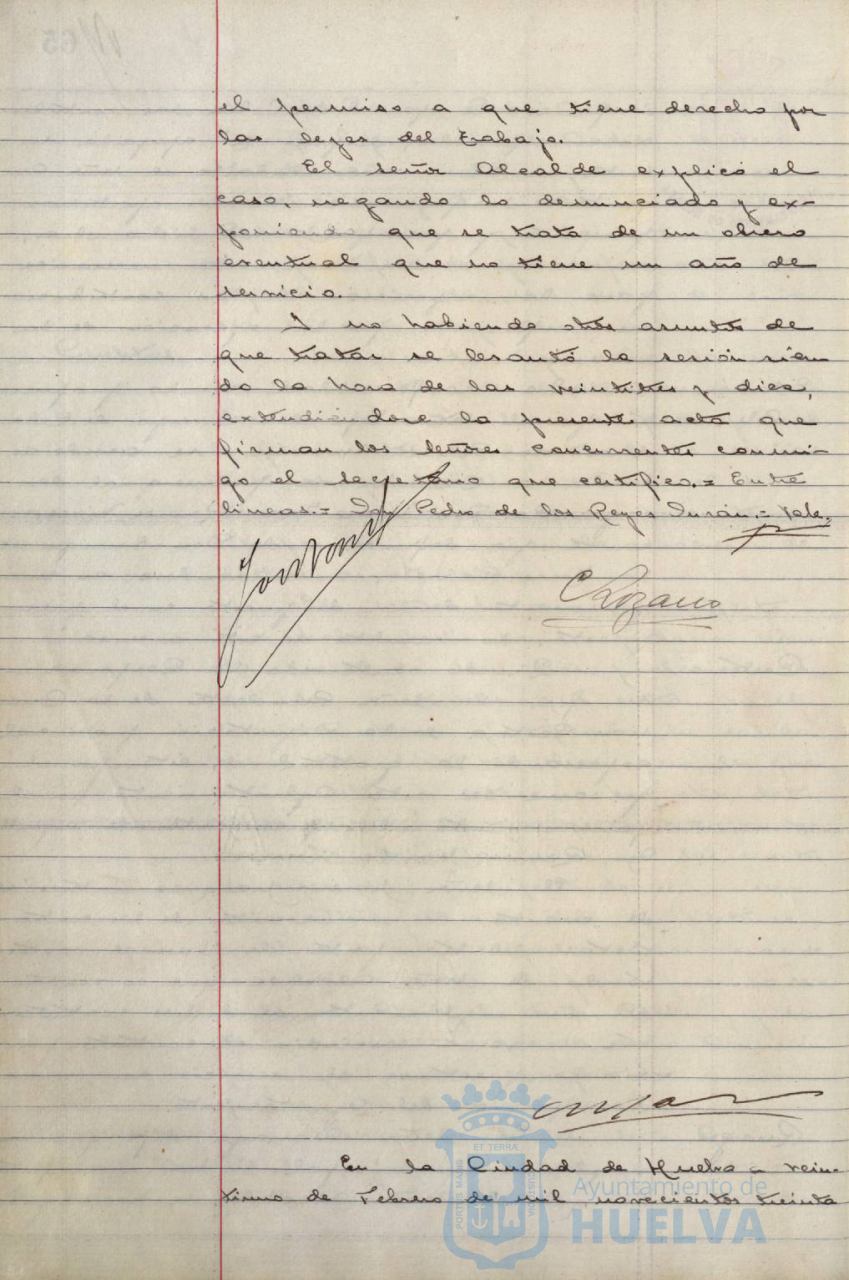 el permiso a que tiene derecho por
las leyes del trabajo.
El señor Alcalde explicó el
caso, negando lo denunciado y ex-
poniendo que se trata de un obrero
eventual que no tiene un año de
servicio.
Y no habiendo otros asuntos de
que tratar se levantó la sesión sien-
do la hora de las veintitres y diez,
extendiéndose la presente acta que
firman los señores concurrentes conmi-
go el secretario que certifico.= Entre
lineas.= Don Pedro de los Reyes Durán.= Vale.
C Lozano
En la Ciudad de Huelva a vein-
tiuno de Febrero de mil novecientos treinta
Ayuntamiento de
HUELVA